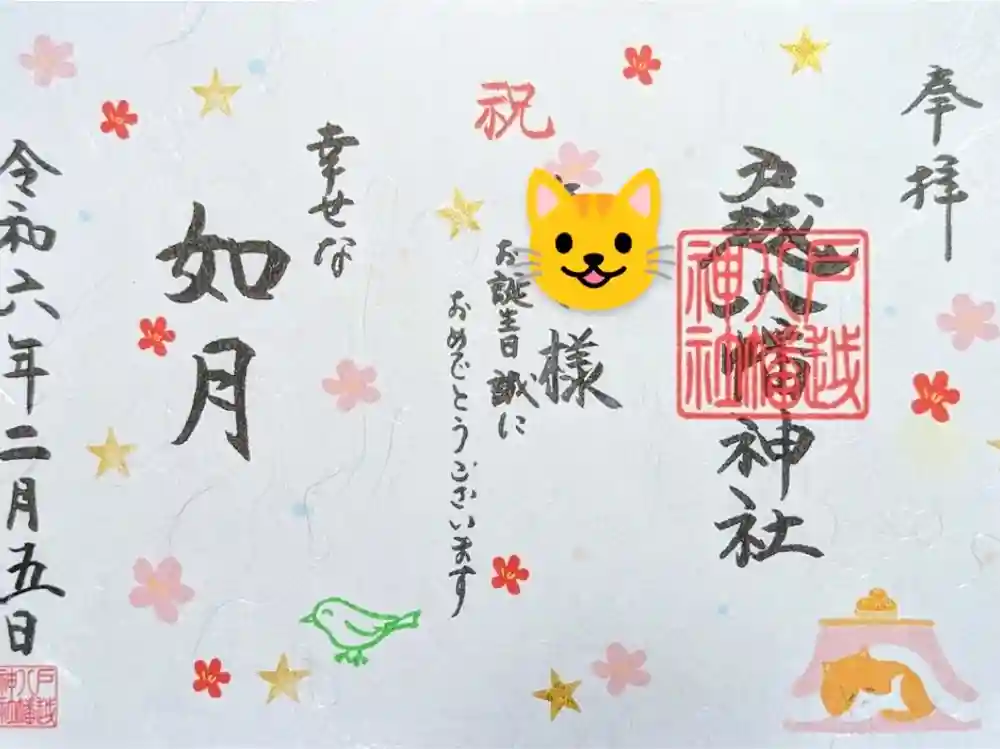 奉拝
戸越八幡神社
戸越八幡神社
祝
様
お誕生日誠に
おめでとうございます
幸せな
如月
令和六年二月五日
戸越八幡神社